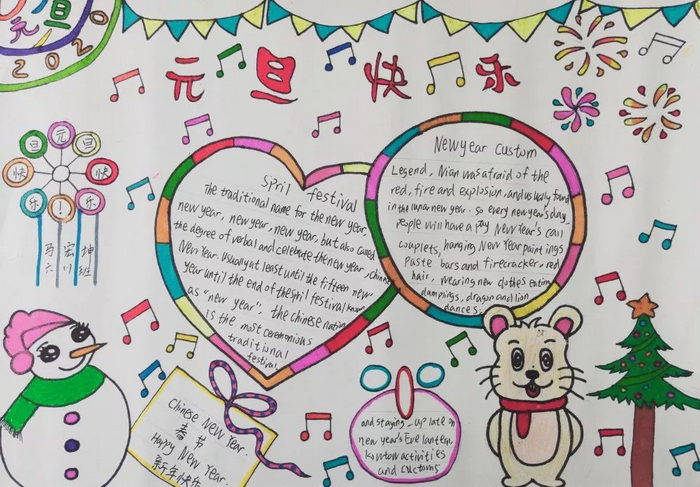 元旦
2020
元旦快乐
元
旦
旦
快
快
乐
!
乐
马 宏 坤
六 川 班
Spril festival
The traditional name for the new year
new year, new year, new year, but also called
the degree of verbal and celebrate the new year, chinese
New Year. Usually at least until the fifteen new
year until the end of the spril festival known
as "new year". the chinese nation
is the most ceremonious
traditional
festival.
New year Custom
Legend, Nian was afraid of the
red, fire and explosion, and usually found
in the lunar new year. So every new year's day,
People will have a pay New Year's call
couplets, hanging New Year paintings
Paste bars and firecracker, red
hair, wearing new clothes eating
dumpings, dragon and lion
dances:
Chinese New Year.
春节
Happy New Year.
新年快乐
and staying-up late on
new year's Eve lantern,
kowtow activities
and customs